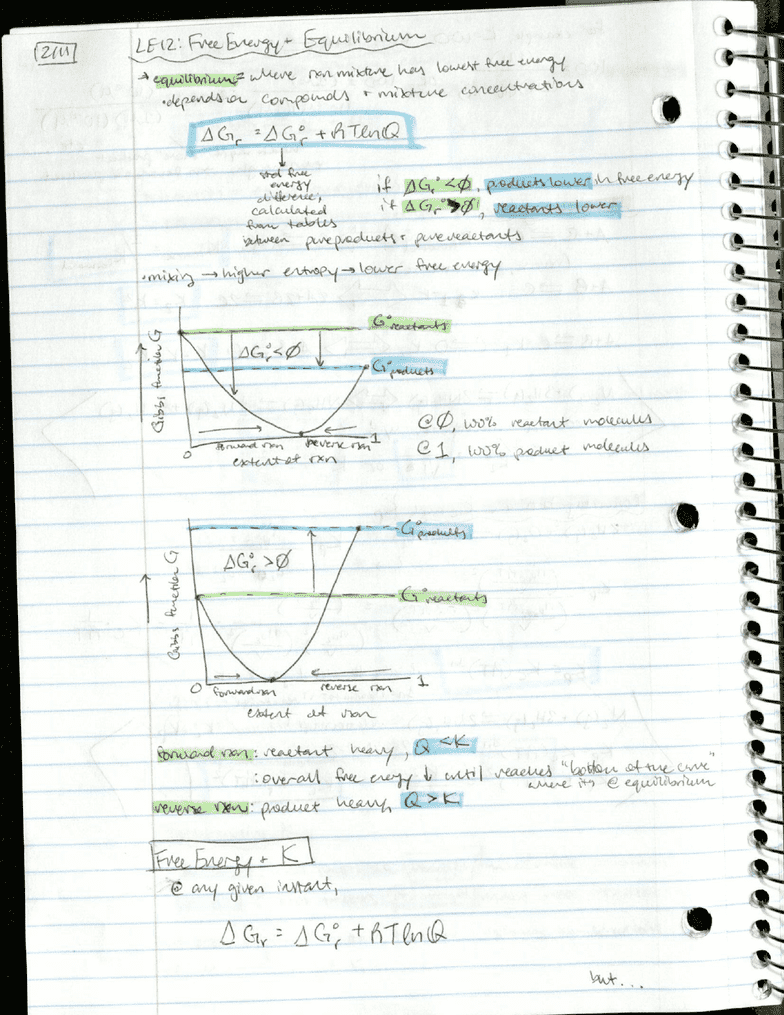 2/11
LE12: Free Energy + Equilibrium
→ equilibrium = where rxn mixture has lowest free energy
• depends on compounds + mixture concentrations
ΔGr = ΔGr° + RTlnQ
std free
energy
difference,
calculated
from tables
between pure products + pure reactants
if ΔGr° <0, products lower in free energy
if ΔGr° >0, reactants lower
• mixing → higher entropy → lower free energy
Gibbs function G
G° reactants
ΔGr° <0
G° products
0
forward rxn
reverse rxn
1
extent of rxn
@ 0, 100% reactant molecules
@ 1, 100% product molecules
Gibbs function G
G° products
ΔGr° >0
G° reactants
0
forward rxn
reverse rxn
1
extent of rxn
forward rxn: reactant heavy, Q <K
: overall free energy ↓ until reaches "bottom of the curve"
where it's @ equilibrium
reverse rxn: product heavy, Q >K
Free Energy + K
@ any given instant,
ΔGr = ΔGr° + RTlnQ
but...